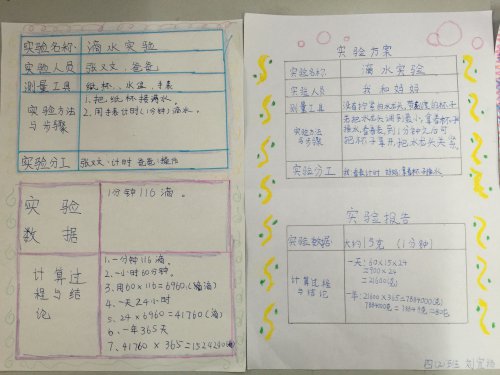 实验名称 滴水实验
实验人员 张义文、爸爸
测量工具 纸杯、水盆、手表
实验方法与步骤
1.把纸杯接滴水。
2.用手表计时(1分钟)滴水。
实验分工 张义文:计时 爸爸:操作
实验数据 1分钟116滴。
计算过程与结论
1.一分钟116滴。
2.一小时60分钟。
3.用60×116=6960(滴)
4.一天24小时
5.24×6960=41760(滴)
6.一年365天
7.41760×365=15242400滴
实验方案
实验名称 滴水实验
实验人员 我和妈妈
测量工具
实验方法与步骤
接水,看看表,到1分钟之后可
把杯子拿开,把水龙头关紧。
实验分工
实验报告
实验数据: 大约15克 (1分钟)
计算过程与结论
一天:60×15×24
=900×24
=21600(克)
一年:21600×365=7884000(克)
四(2)班